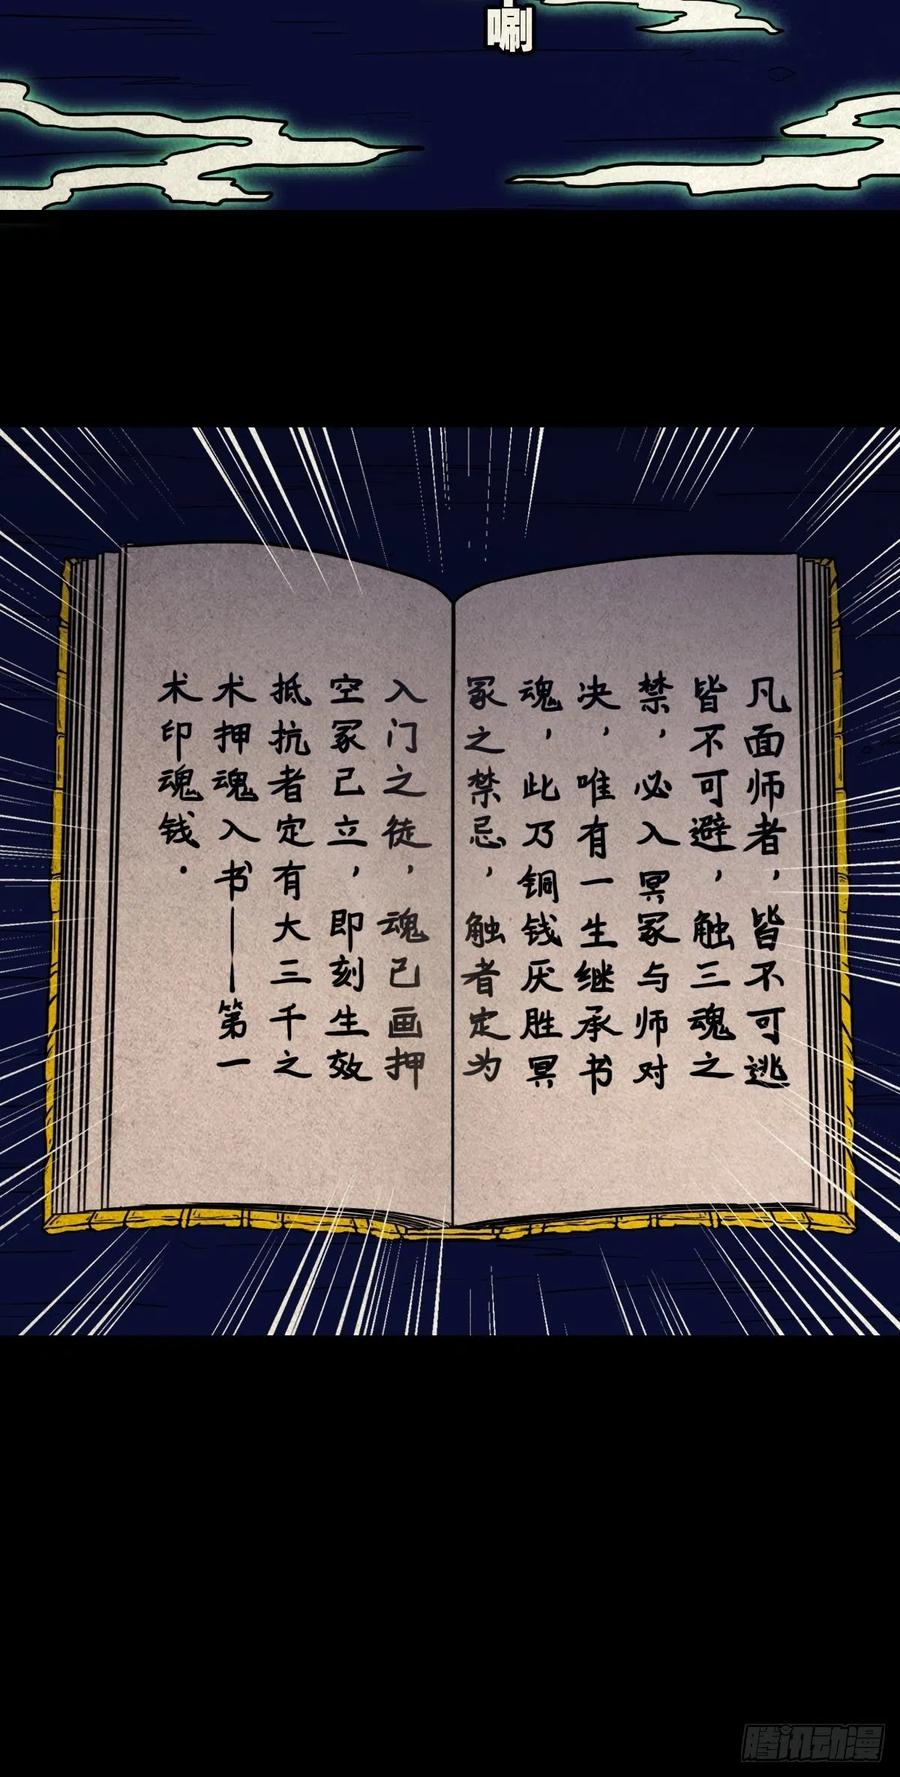 唰
凡面师者，皆不可逃
皆不可避，触三魂之
禁，必入冥冢与师对
决，唯有一生继承书
魂，此乃铜钱厌胜冥
冢之禁忌，触者定为
入门之徒，魂已画押
空冢已立，即刻生效
抵抗者定有大三千之
术押魂入书——第一
术印魂钱.
腾讯动漫